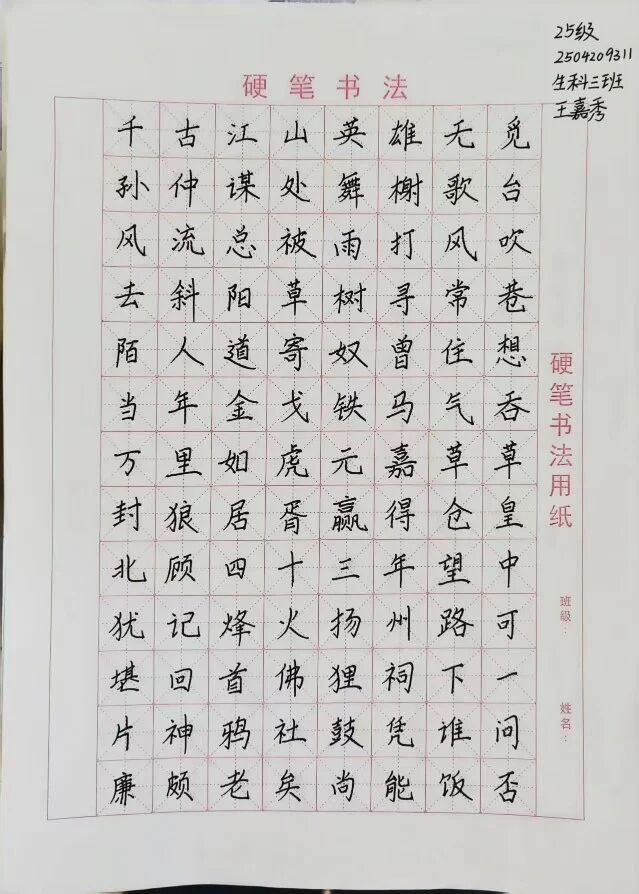 25级
2504209311
生科三班
王嘉秀
硬笔书法
千古江山英雄无觅
孙仲谋处舞榭歌台
风流总被雨打风吹
去斜阳草树寻常巷
陌人道寄奴曾住想
当年金戈铁马气吞
万里如虎元嘉草草
封狼居胥赢得仓皇
北顾四十三年望中
犹记烽火扬州路可
堪回首佛狸祠下一
片神鸦社鼓凭谁问
廉颇老矣尚能饭否
硬笔书法用纸
班级：
姓名：